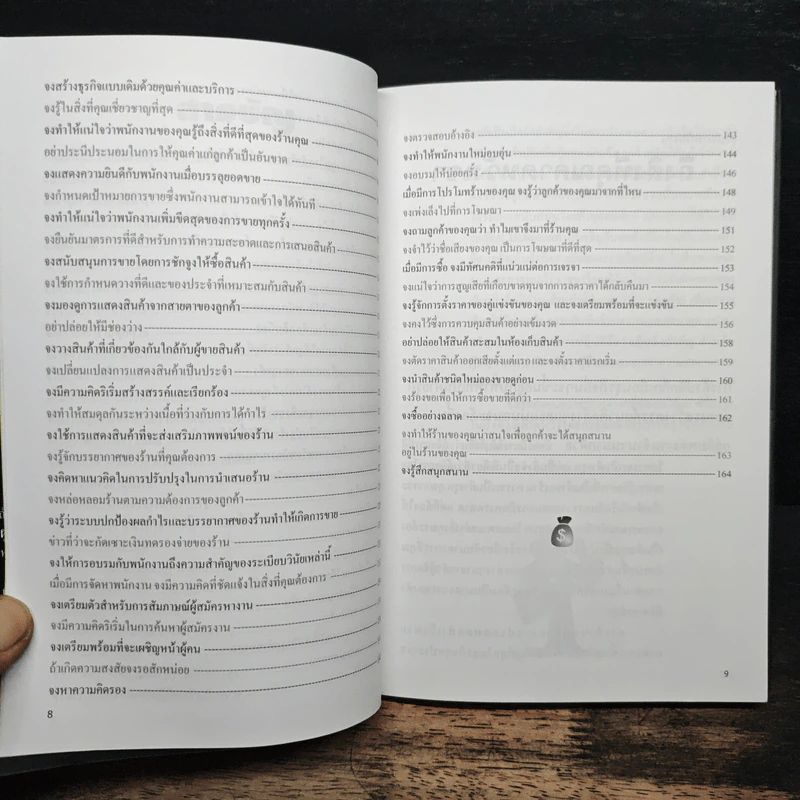 จงสร้างธุรกิจแบบเดิมด้วยคุณค่าและบริการ
จงรู้ในสิ่งที่คุณเชี่ยวชาญที่สุด
จงทำให้แน่ใจว่าพนักงานของคุณรู้ถึงสิ่งที่ดีที่สุดของร้านคุณ
อย่าประนีประนอมในการให้คุณค่าแก่ลูกค้าเป็นอันขาด
จงแสดงความยินดีกับพนักงานเมื่อบรรลุยอดขาย
จงกำหนดเป้าหมายการขายซึ่งพนักงานสามารถเข้าใจได้ทันที
จงทำให้แน่ใจว่าพนักงานเพิ่มขีดสุดของการขายทุกครั้ง
จงยืนยันมาตรการที่ดีสำหรับการทำความสะอาดและการเสนอสินค้า
จงสนับสนุนการขายโดยการชักจูงให้ซื้อสินค้า
จงใช้การกำหนดวางที่ดีและของประจำที่เหมาะสมกับสินค้า
จงมองดูการแสดงสินค้าจากสายตาของลูกค้า
อย่าปล่อยให้มีช่องว่าง
จงวางสินค้าที่เกี่ยวข้องกันใกล้กับผู้ขายสินค้า
จงเปลี่ยนแปลงการแสดงสินค้าเป็นประจำ
จงมีความคิดริเริ่มสร้างสรรค์และเรียกร้อง
จงทำให้สมดุลกันระหว่างเนื้อที่ว่างกับการได้กำไร
จงใช้การแสดงสินค้าที่จะส่งเสริมภาพพจน์ของร้าน
จงรู้จักบรรยากาศของร้านที่คุณต้องการ
จงคิดหาแนวคิดในการปรับปรุงในการนำเสนอร้าน
จงหล่อหลอมร้านตามความต้องการของลูกค้า
จงรู้ว่าระบบปกป้องผลกำไรและบรรยากาศของร้านทำให้เกิดการขาย
ข่าวที่ว่าจะกัดเซาะเงินทดรองจ่ายของร้าน
จงให้การอบรมกับพนักงานถึงความสำคัญของระเบียบวินัยเหล่านี้
เมื่อมีการจัดหาพนักงาน จงมีความคิดที่ชัดแจ้งในสิ่งที่คุณต้องการ
จงเตรียมตัวสำหรับการสัมภาษณ์ผู้สมัครหางาน
จงมีความคิดริเริ่มในการค้นหาผู้สมัครงาน
จงเตรียมพร้อมที่จะเผชิญหน้าผู้คน
ถ้าเกิดความสงสัยจงรอสักหน่อย
จงหาความคิดรอง
8
จงตรวจสอบอ้างอิง 143
จงทำให้พนักงานใหม่อบอุ่น 144
จงอบรมให้บ่อยครั้ง 146
เมื่อมีการโปรโมทร้านของคุณ จงรู้ว่าลูกค้าของคุณมาจากที่ไหน 148
จงเพ่งเล็งไปที่การโฆษณา 149
จงถามลูกค้าของคุณว่า ทำไมเขาจึงมาที่ร้านคุณ 151
จงจำไว้ว่าชื่อเสียงของคุณ เป็นการโฆษณาที่ดีที่สุด 152
เมื่อมีการซื้อ จงมีทัศนคติที่แน่วแน่ต่อการเจรจา 153
จงแน่ใจว่าการสูญเสียที่เกือบขาดทุนจากการลดราคาได้กลับคืนมา 154
จงรู้จักการตั้งราคาของคู่แข่งขันของคุณ และจงเตรียมพร้อมที่จะแข่งขัน 155
จงคงไว้ซึ่งการควบคุมสินค้าอย่างเข้มงวด 156
อย่าปล่อยให้สินค้าสะสมในห้องเก็บสินค้า 158
จงตัดราคาสินค้าออกเสียตั้งแต่แรก และจงตั้งราคาแรกเริ่ม 159
จงนำสินค้าชนิดใหม่ลองขายดูก่อน 160
จงร้องขอเพื่อให้การซื้อขายที่ดีกว่า 161
จงซื้ออย่างฉลาด 162
จงทำให้ร้านของคุณน่าสนใจเพื่อลูกค้าจะได้สนุกสนาน
อยู่ในร้านของคุณ 163
จงรู้สึกสนุกสนาน 164
$
9